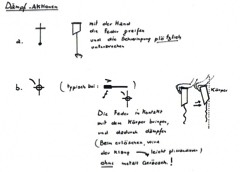 Dämpf-Aktionen
a.
mit der Hand
die Feder greifen
und die Schwingung plötzlich
unterbrechen
b.
(typisch bei:
)
Körper
Die Feder in Kontakt
mit dem Körper bringen,
und dadurch dämpfen
(Beim
der Klang leicht
ohne metall. Geräusch!